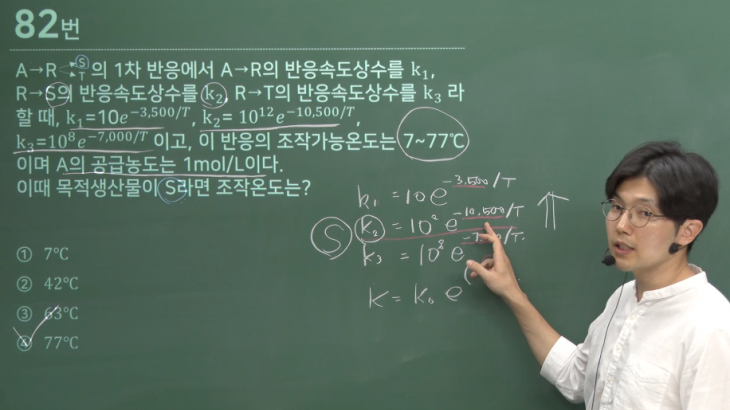 82번
A→R S T 의 1차 반응에서 A→R의 반응속도상수를 k₁,
R→S의 반응속도상수를 k₂, R→T의 반응속도상수를 k₃ 라
할 때, k₁=10e^{-3,500/T}, k₂= 10¹²e^{-10,500/T},
k₃=10⁸e^{-7,000/T} 이고, 이 반응의 조작가능온도는 7~77℃
이며 A의 공급농도는 1mol/L이다.
이때 목적생산물이 S라면 조작온도는?
① 7℃
② 42℃
③ 63℃
④ 77℃
k₁ = 10 e^{-3.500/T}
S k₂ = 10 e^{-10.500/T}
k₃ = 10⁸ e
K = K₀ e